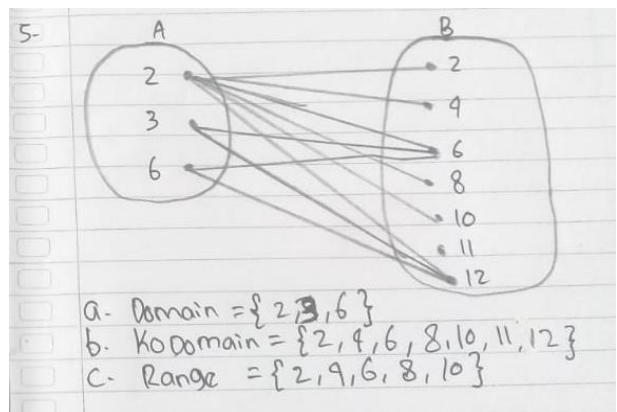 5- A B
2 2
4
3
6
6 8
10
11
12
a. Domain = { 2,3,6 }
b. KoDomain = {2,4,6,8,10,11,12}
c. Range = {2,4,6,8,10}